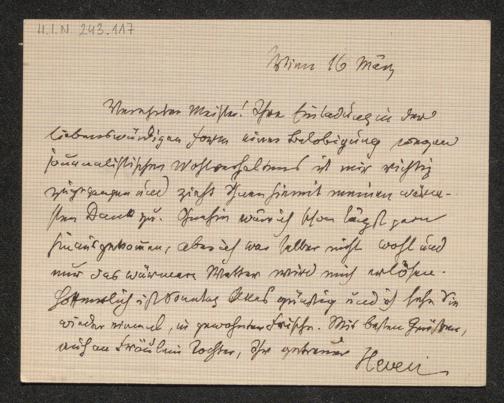 H.I.N. 243.117
Wien 16 März
Verehrter Meister! Ihre Einladung in der
liebenswürdigen Form einer Belobigung wegen
journalistischen Wohlverhaltens ist mir richtig
zugegangen und zieht Ihnen hiemit meinen wärm-
sten Dank zu. Ihnen wär ich schon längst gern
hinausgekommen, aber ich war selber nicht wohl und
nur das wärmere Wetter wird mich erlösen.
Hoffentlich ist Sonntag Alles günstig und ich sehe Sie
wieder einmal, in gewohnter Frische. Mit besten Grüßen,
auch an Fräulein Tochter, Ihr getreuer
Hevesi